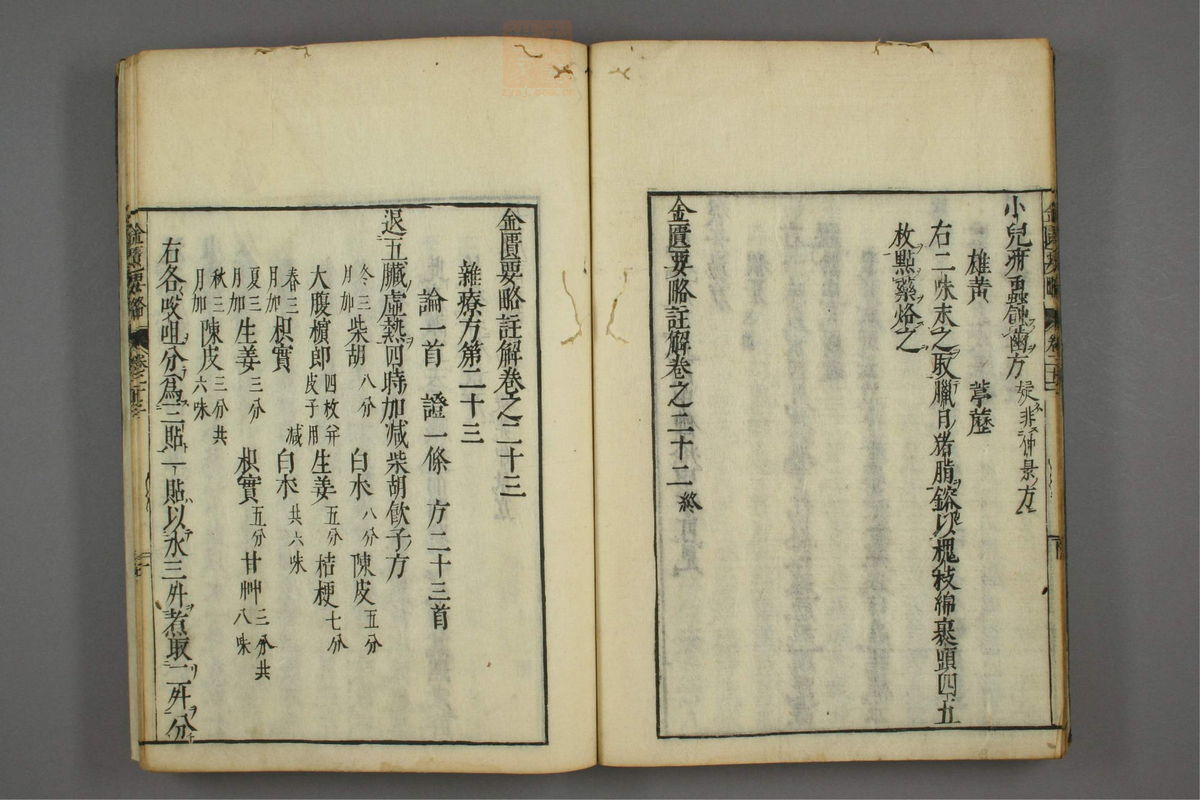 小兒疳蟲蝕齒方 疑非仲景方
雄黃 葶藶
右二味末之取臘日猪脂鎔以槐枝綿裹頭四五
枚點藥烙之
金匱要略註解卷之二十二 終
金匱要略註解卷之二十三
雜療方第二十三
論一首 證一條 方二十三首
退五臟虛熱四時加減柴胡飲子方
冬三月加柴胡 八分 白朮 八分 陳皮 五分
大腹檳郎 四枚并皮子用 生姜 五分 桔梗 七分
春三月加枳實 減白朮 共六味
夏三月加生姜 三分 枳實 五分 甘艸 三分共八味
秋三月加陳皮 三分共六味
右各㕮咀分爲三貼一貼以水三升煮取二升分
金匱要略